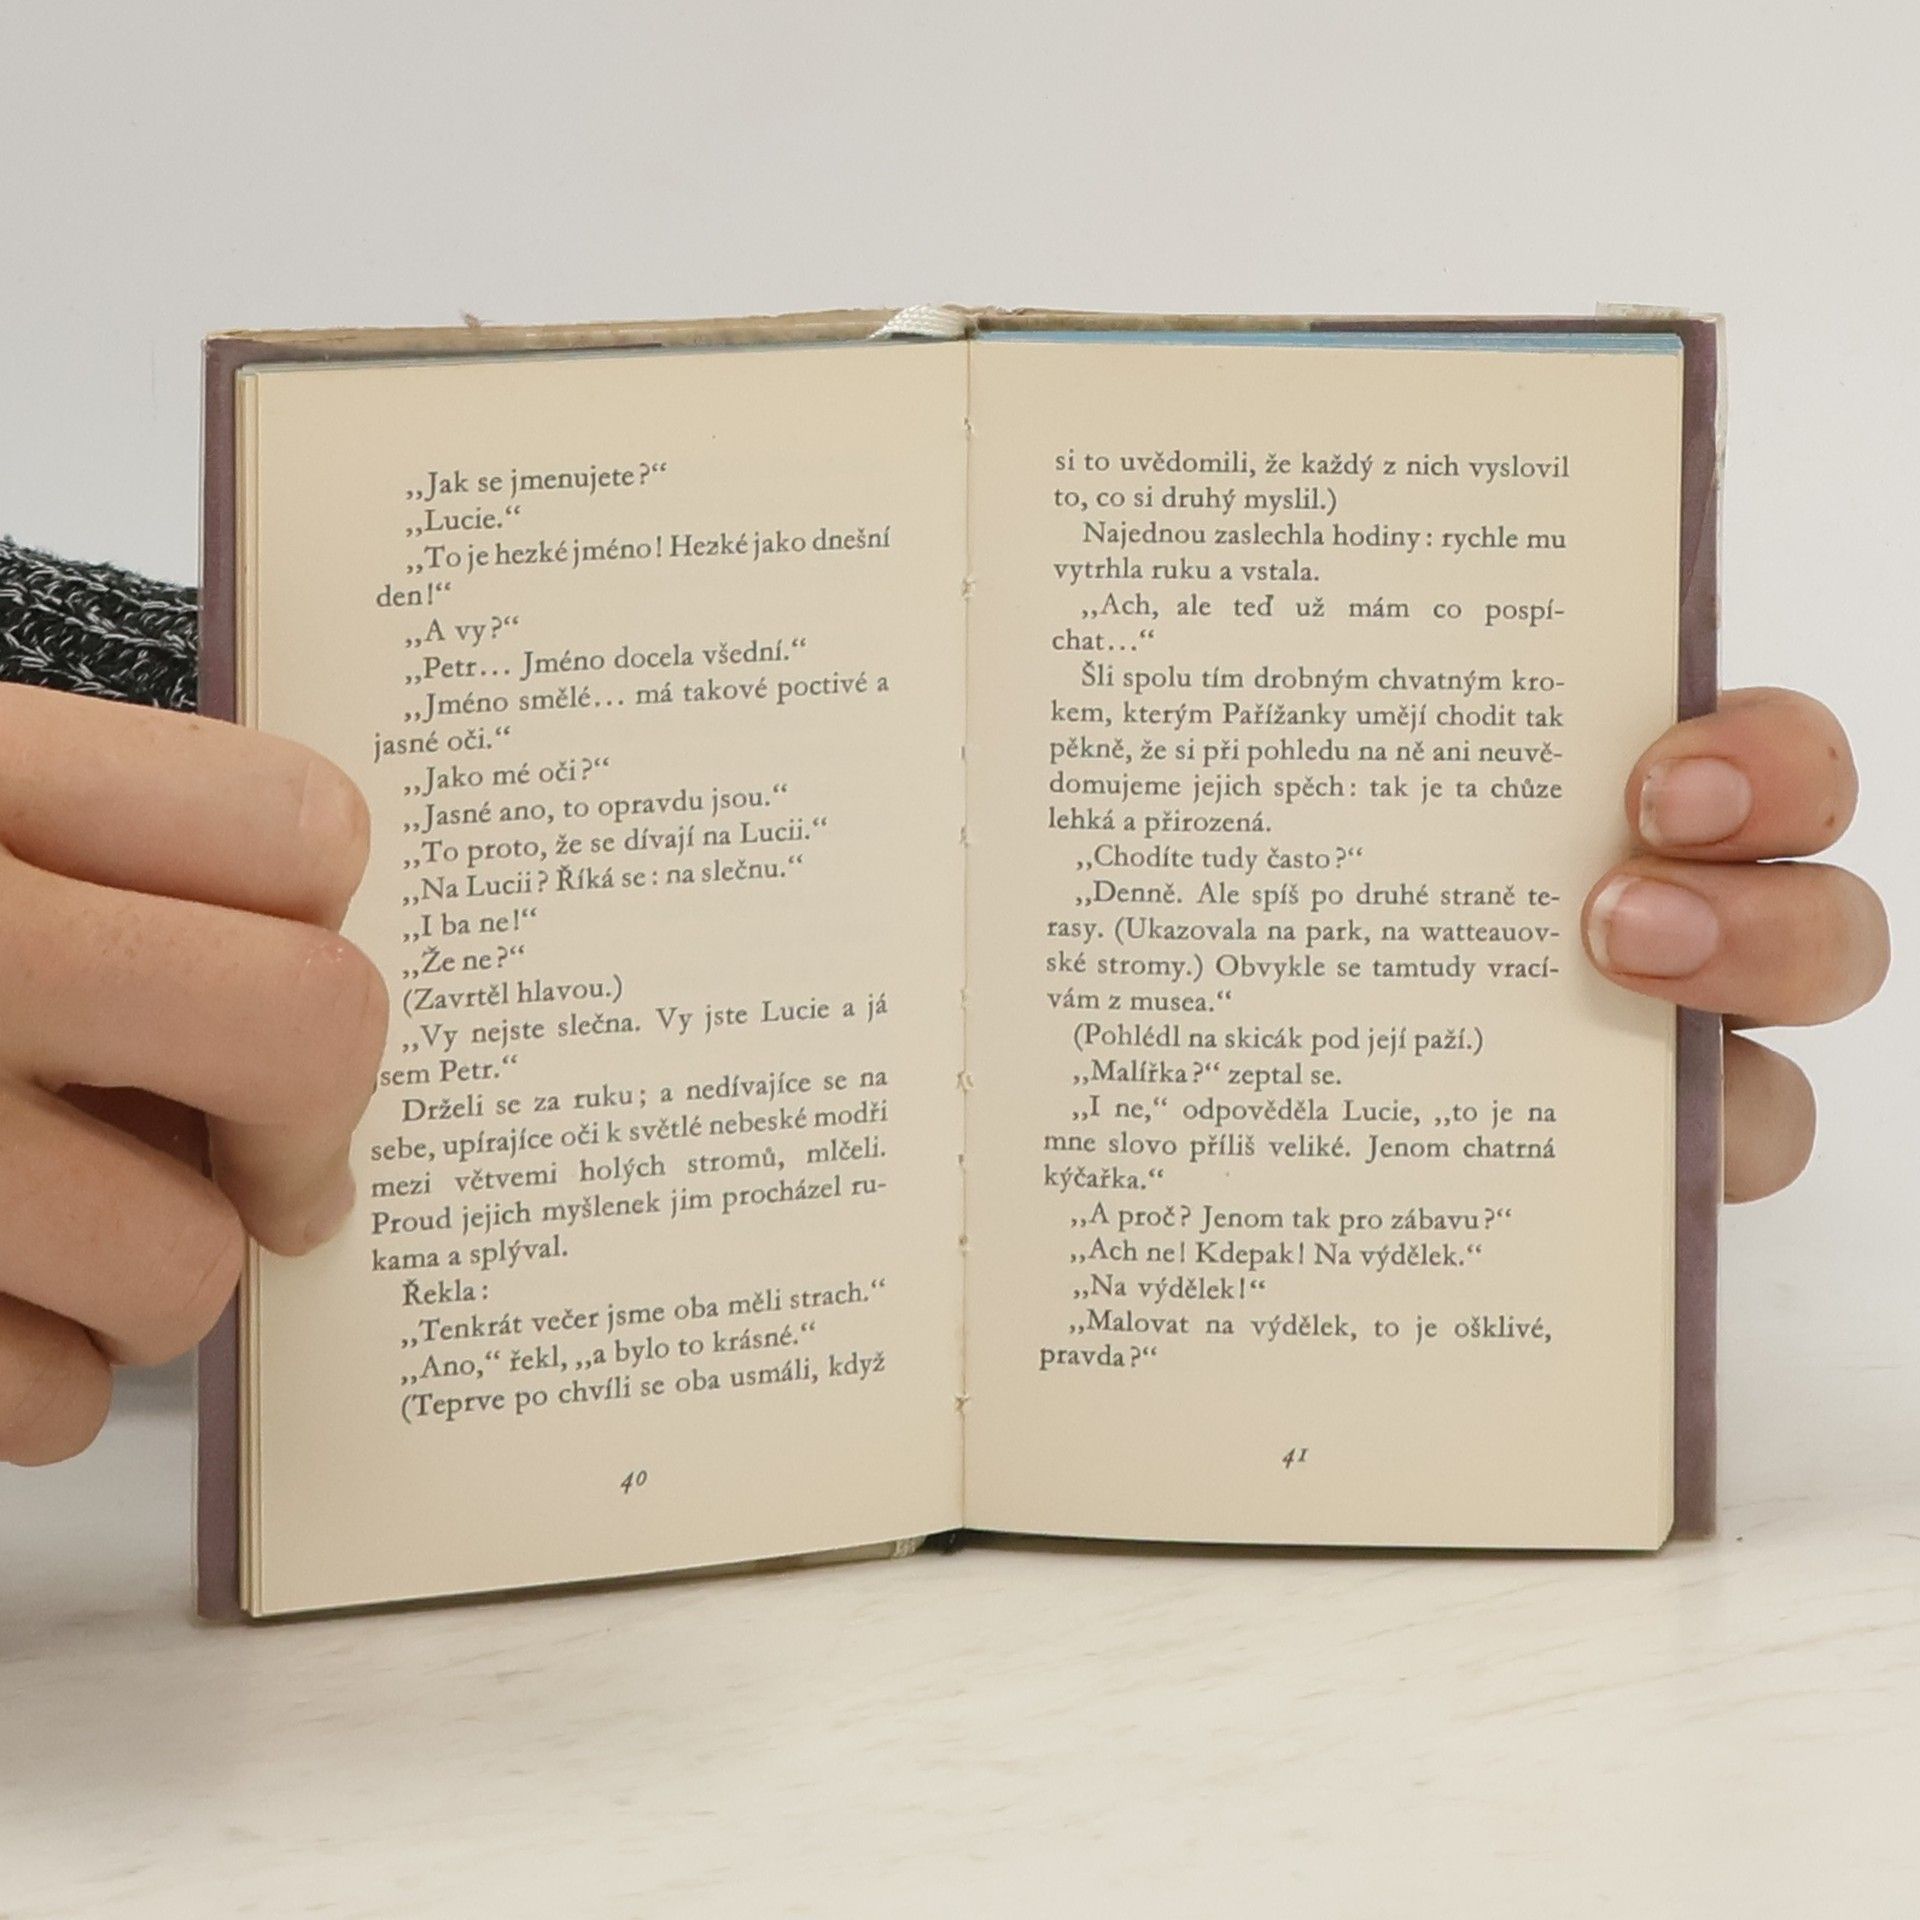 „Jak se jmenujete?“
„Lucie.“
„To je hezké jméno! Hezké jako dnešní
den!“
„A vy?“
„Petr... Jméno docela všední.“
„Jméno smělé... má takové poctivé a
jasné oči.“
„Jako mé oči?“
„Jasné ano, to opravdu jsou.“
„To proto, že se dívají na Lucii.“
„Na Lucii? Říká se: na slečnu.“
„I ba ne!“
„Že ne?“
(Zavrtěl hlavou.)
„Vy nejste slečna. Vy jste Lucie a já
jsem Petr.“
Drželi se za ruku; a nedívajíce se na
sebe, upírajíce oči k světlé nebeské modři
mezi větvemi holých stromů, mlčeli.
Proud jejich myšlenek jim procházel ru-
kama a splýval.
Řekla:
„Tenkrát večer jsme oba měli strach.“
„Ano,“ řekl, „a bylo to krásné.“
(Teprve po chvíli se oba usmáli, když
40
si to uvědomili, že každý z nich vyslovil
to, co si druhý myslil.)
Najednou zaslechla hodiny: rychle mu
vytrhla ruku a vstala.
„Ach, ale teď už mám co pospí-
chat...“
Šli spolu tím drobným chvatným kro-
kem, kterým Pařížanky umějí chodit tak
pěkně, že si při pohledu na ně ani neuvě-
domujeme jejich spěch: tak je ta chůze
lehká a přirozená.
„Chodíte tudy často?“
„Denně. Ale spíš po druhé straně te-
rasy. (Ukazovala na park, na watteauov-
ské stromy.) Obvykle se tamtudy vrací-
vám z musea.“
(Pohlédl na skicák pod její paží.)
„Malířka?“ zeptal se.
„I ne,“ odpověděla Lucie, „to je na
mne slovo příliš veliké. Jenom chatrná
kýčařka.“
„A proč? Jenom tak pro zábavu?“
„Ach ne! Kdepak! Na výdělek.“
„Na výdělek!“
„Malovat na výdělek, to je ošklivé,
pravda?“
41